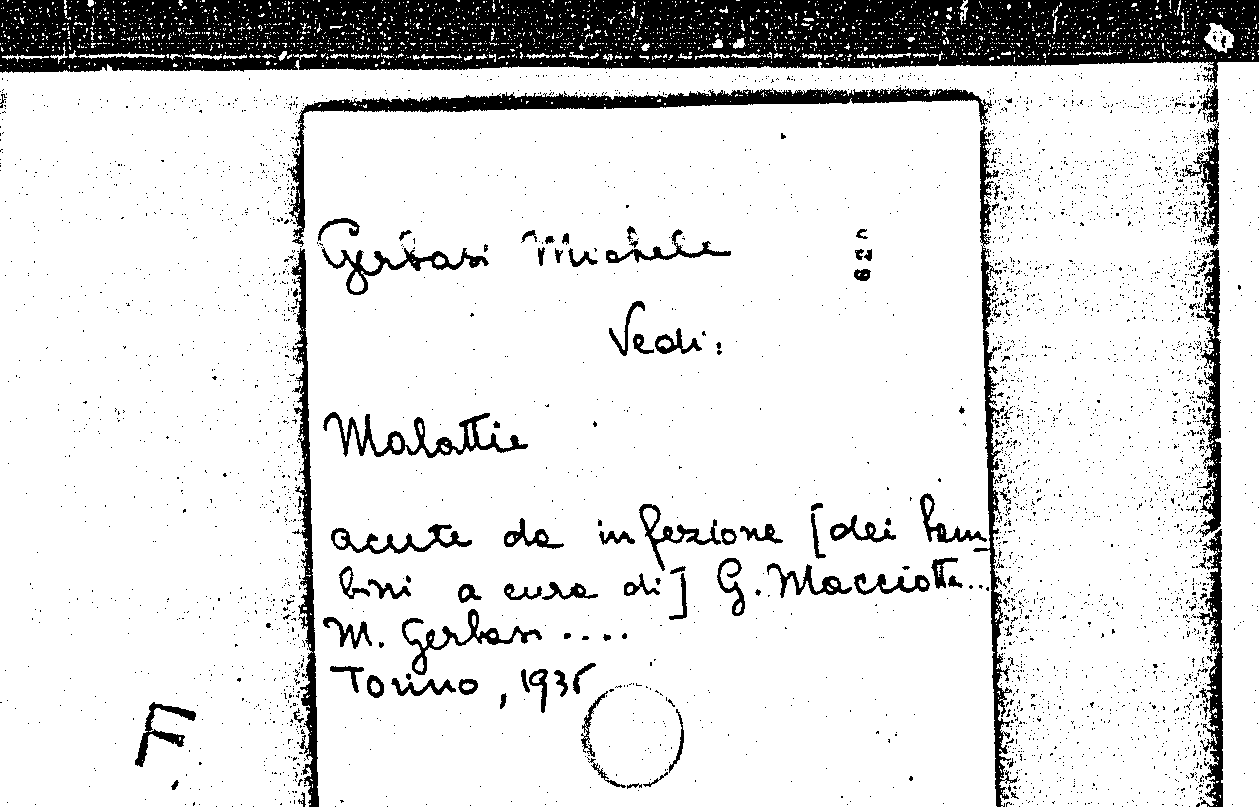 Gerbasi Michele
Vedi:
Malattie
acute da infezione [dei bam-
bini a cura di] G. Macciotta...
M. Gerbasi ....
Torino, 1936
F.